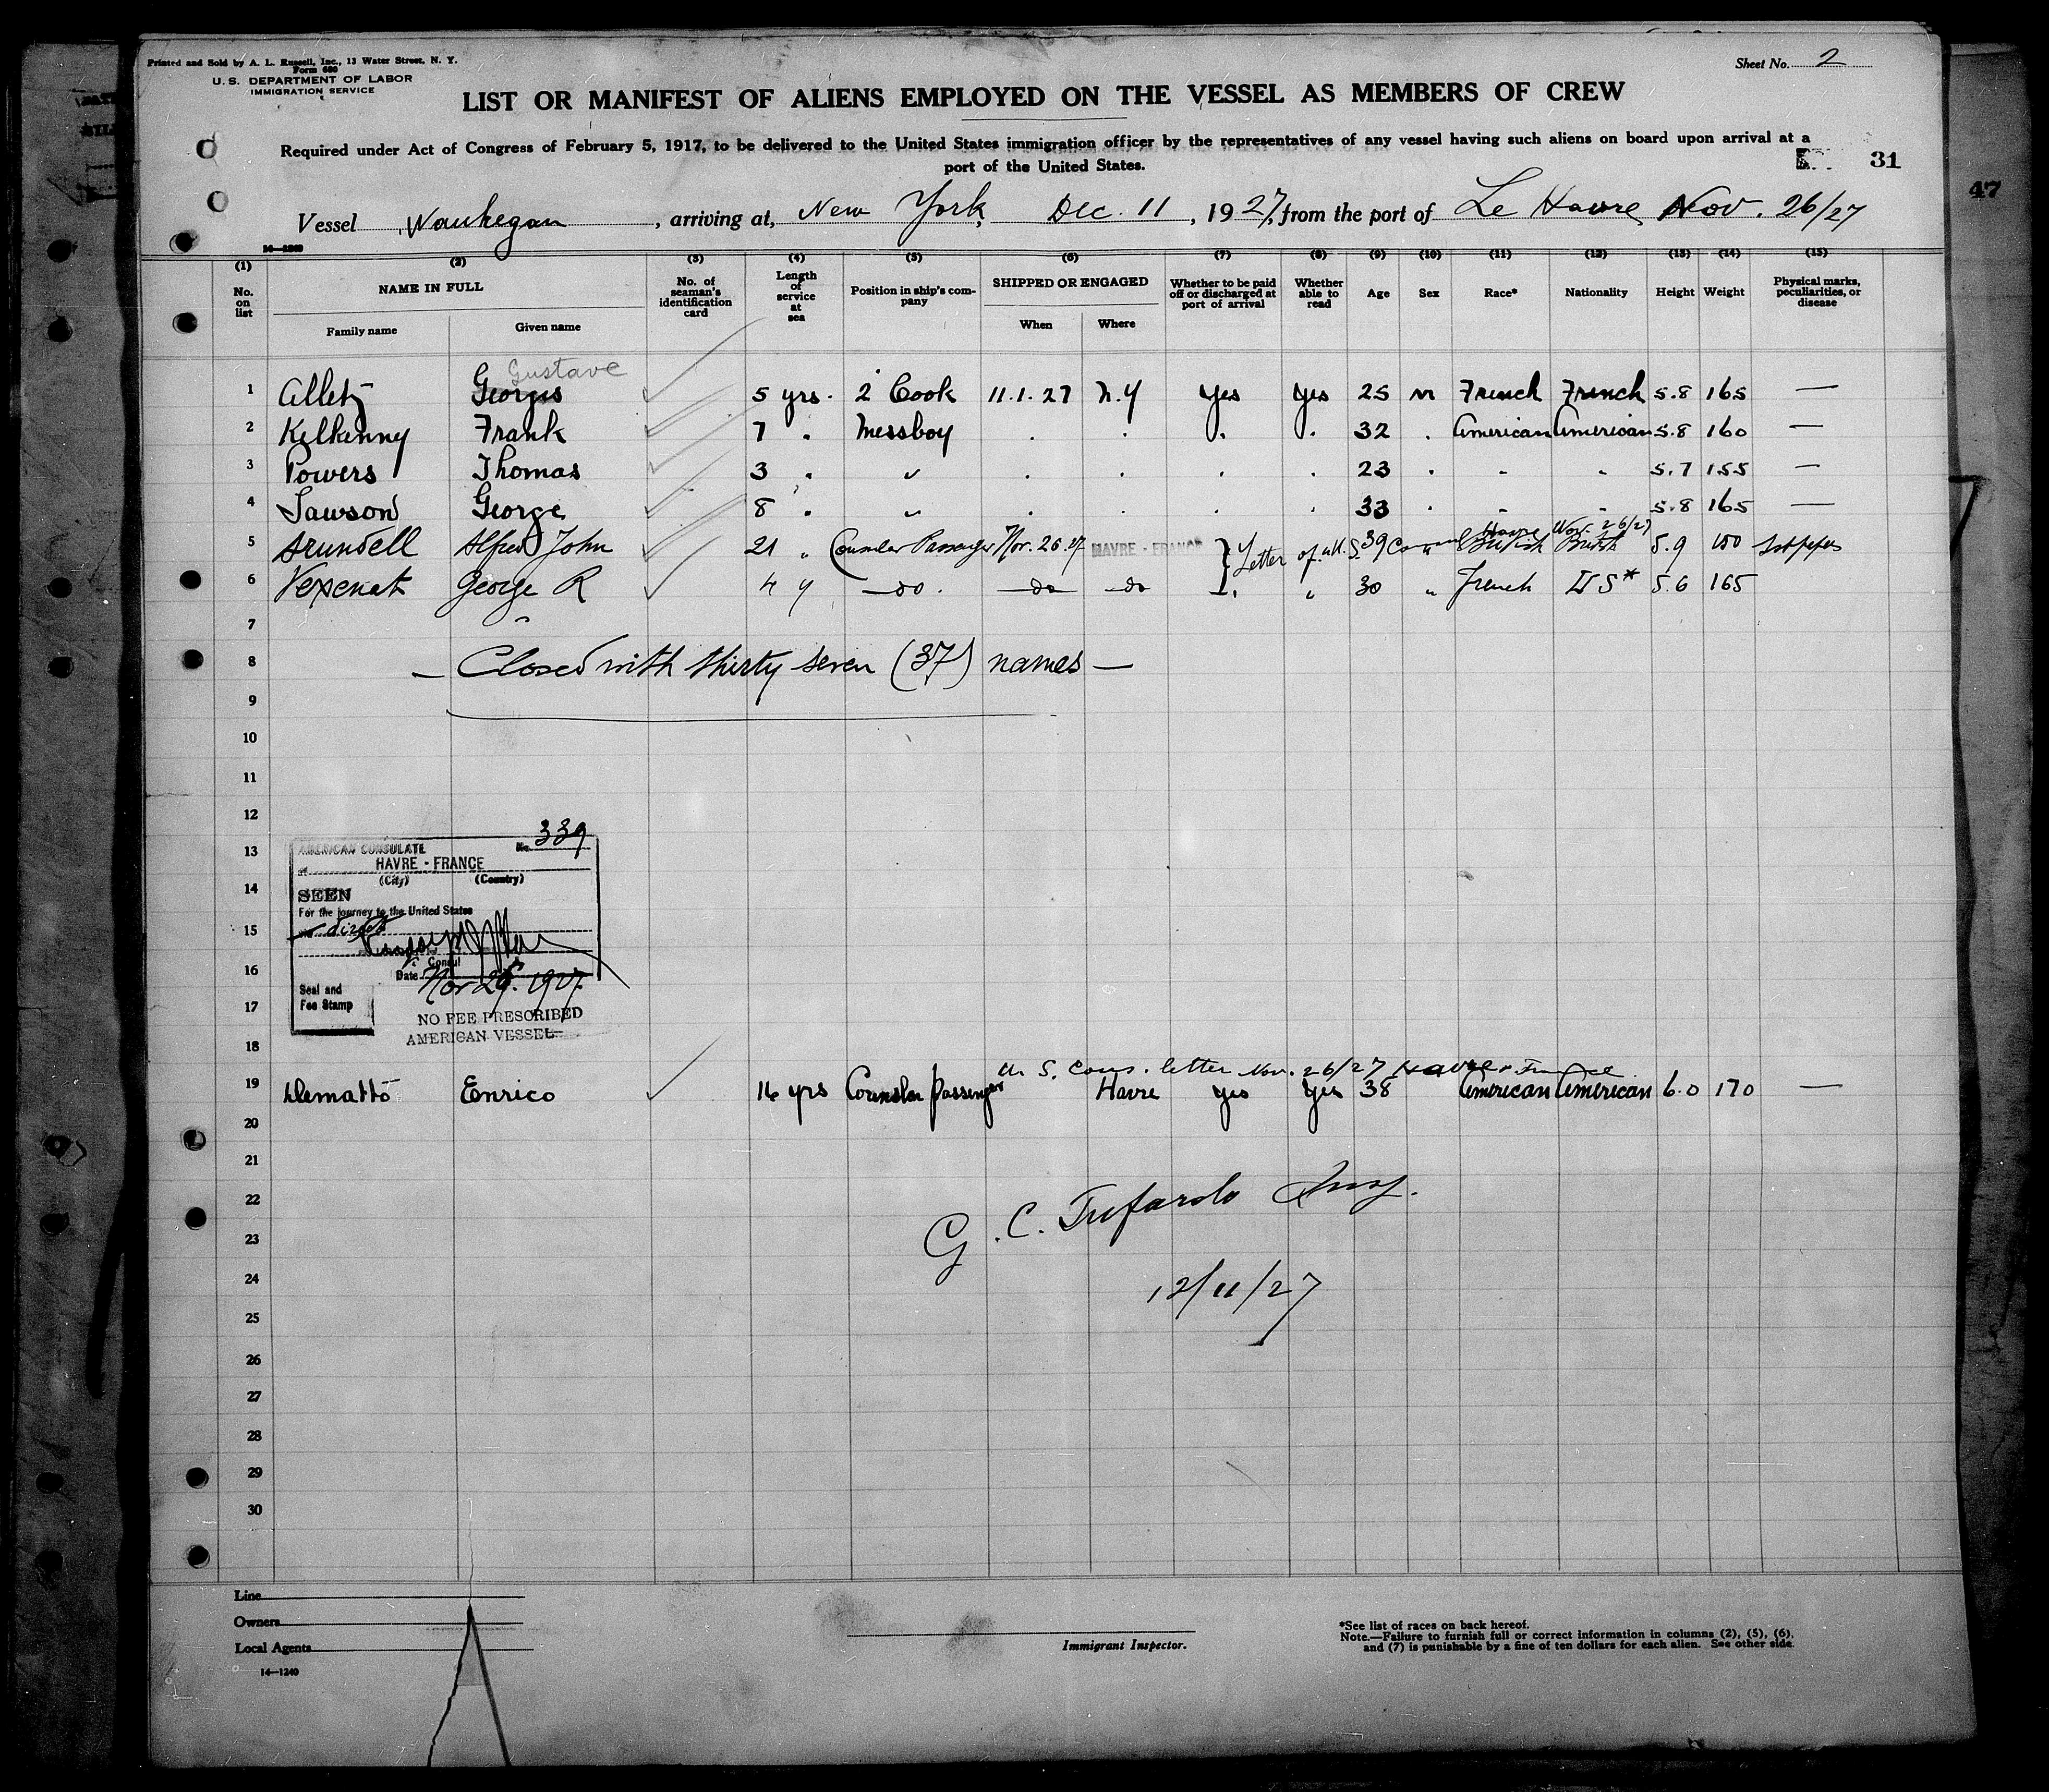 Printed and Sold by A. L. Russell, Inc., 13 Water Street, N. Y.
Form 680
U. S. DEPARTMENT OF LABOR
IMMIGRATION SERVICE
Sheet No. 2
LIST OR MANIFEST OF ALIENS EMPLOYED ON THE VESSEL AS MEMBERS OF CREW
Required under Act of Congress of February 5, 1917, to be delivered to the United States immigration officer by the representatives of any vessel having such aliens on board upon arrival at a
port of the United States.
31
47
Vessel Waukegan, arriving at, New York, Dec. 11, 1927, from the port of Le Havre, Nov. 26/27
14—1240
(1) (2) (3) (4) (5) (6) (7) (8) (9) (10) (11) (12) (13) (14) (15)
No. on list NAME IN FULL No. of seaman's identification card Length of service at sea Position in ship's company SHIPPED OR ENGAGED Whether to be paid off or discharged at port of arrival Whether able to read Age Sex Race* Nationality Height Weight Physical marks, peculiarities, or disease
Family name Given name When Where
Gustave
1 Alletz Georges 5 yrs. 2 Cook 11.1.27 N.Y Yes Yes 25 M French French 5.8 165 —
2 Kelkenny Frank 7 " Messboy . . . . 32 . American American 5.8 160 —
3 Powers Thomas 3 " " . . . . 23 . " " 5.7 155 —
4 Lawson George 8 " " . . . . 33 . " " 5.8 165 —
Havre Nov. 26/27
5 Arundell Alfred John 21 " Consular Passenger Nov. 26 27 HAVRE - FRANCE Letter of U.S. 39 " British British 5.9 1st papers
6 Vexenat George R 4 y —do. —do— —do " " 30 " French US* 5.6 165
7
8 — Closed with thirty seven (37) names —
9
10
11
12
13
14
15
16
17
18
339
AMERICAN CONSULATE No.
at HAVRE - FRANCE
(City) (Country)
SEEN
For the journey to the United States
via direct
Consul
Date Nov 1927.
Seal and
Fee Stamp
NO FEE PRESCRIBED
AMERICAN VESSEL
U. S. Cons. letter Nov. 26/27 Havre - France
19 Dematto Enrico 16 yrs Counsler passenger Havre yes Yes 38 American American 6.0 170 —
20
21
22
23
24
25
26
27
28
29
30
G. C. Tufarolo Insp.
12/11/27
Line
Owners
Local Agents
14—1240
Immigrant Inspector.
*See list of races on back hereof.
Note.—Failure to furnish full or correct information in columns (2), (5), (6),
and (7) is punishable by a fine of ten dollars for each alien. See other side.